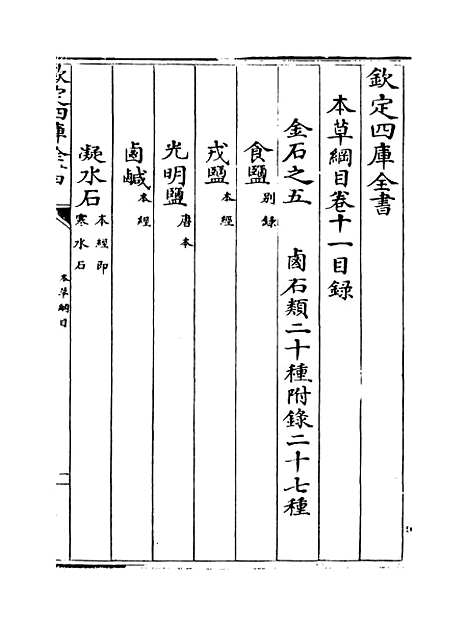 欽定四庫全書
本草綱目卷十一目録
金石之五　鹵石類二十種附錄二十七種
食鹽别錄
戎鹽本經
光明鹽唐本
鹵鹹本經
凝水石本經即寒水石
欽定四庫全書
本草綱目